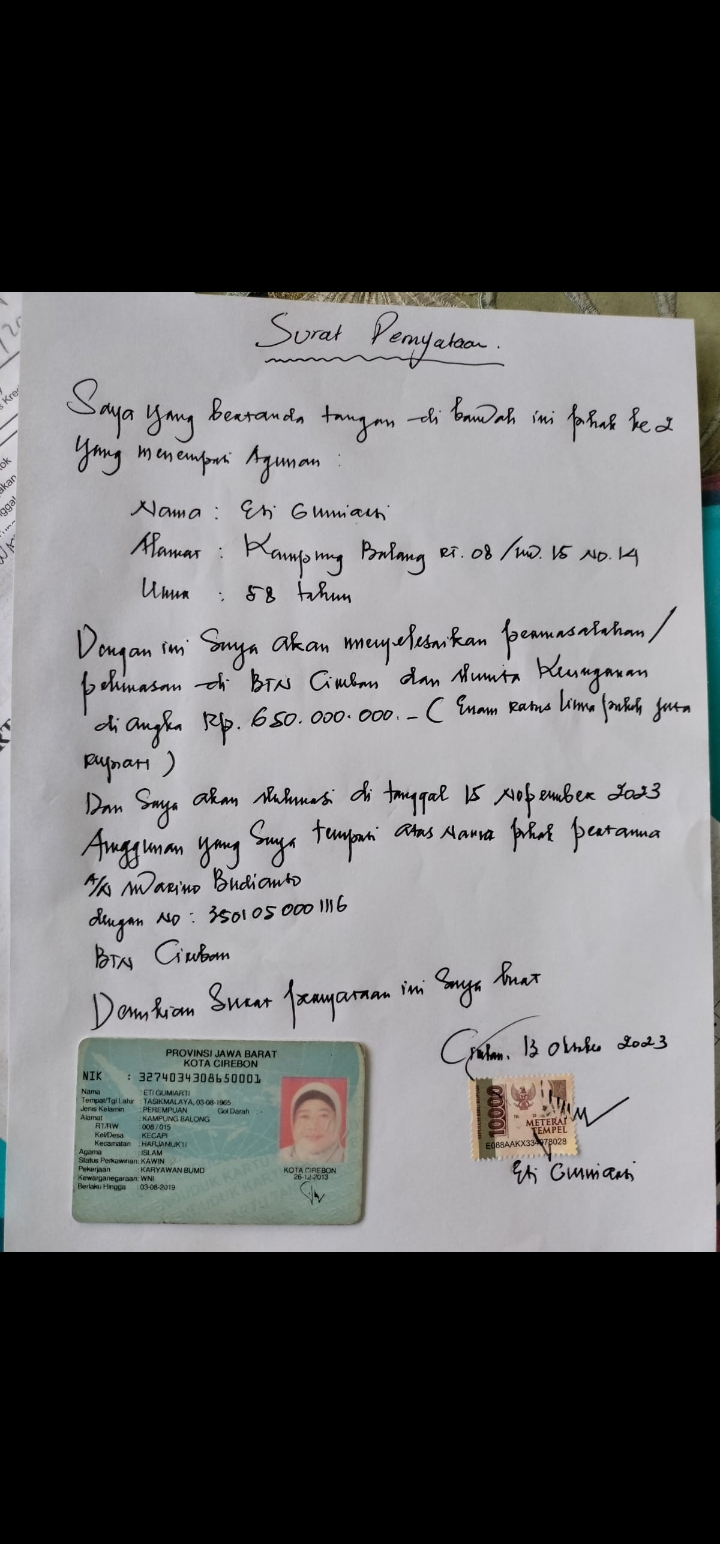 Surat Pernyataan.
Saya yang bertanda tangan di bawah ini pihak ke 2
yang menempati Agunan :
Nama : Eti Gumiarti
Alamat : Kampung Balong RT. 08 / RW. 15 NO. 14
Umur : 58 tahun
Dengan ini Saya akan menyelesaikan permasalahan/
pelunasan di BTN Cirebon dan Minta Keringanan
di angka Rp. 650.000.000.- ( Enam Ratus Lima puluh juta
Rupiah )
Dan Saya akan Melunasi di tanggal 15 Nopember 2023
Anggunan yang Saya tempati atas Nama pihak pertama
A/N Warino Budianto
dengan NO : 350105000 1116
BTN Cirebon
Demikian Surat pernyataan ini Saya buat
Cirebon. 13 Oktober 2023
PROVINSI JAWA BARAT
KOTA CIREBON
NIK : 3274034308650001
Nama : ETI GUMIARTI
Tempat/Tgl Lahir : TASIKMALAYA, 03-08-1965
Jenis Kelamin : PEREMPUAN Gol Darah
Alamat : KAMPUNG BALONG
RT/RW : 008 / 015
Kel/Desa : KECAPI
Kecamatan : HARJAMUKTI
Agama : ISLAM
Status Perkawinan : KAWIN
Pekerjaan : KARYAWAN BUMD
Kewarganegaraan : WNI
Berlaku Hingga : 03-08-2019
KOTA CIREBON
26-12-2013
10000
METERAI
TEMPEL
E088AAKX334978028
Eti Gumiarti